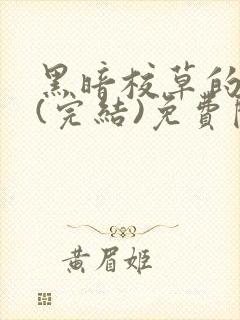 黑暗校草的
(完結)免費
黃眉姬